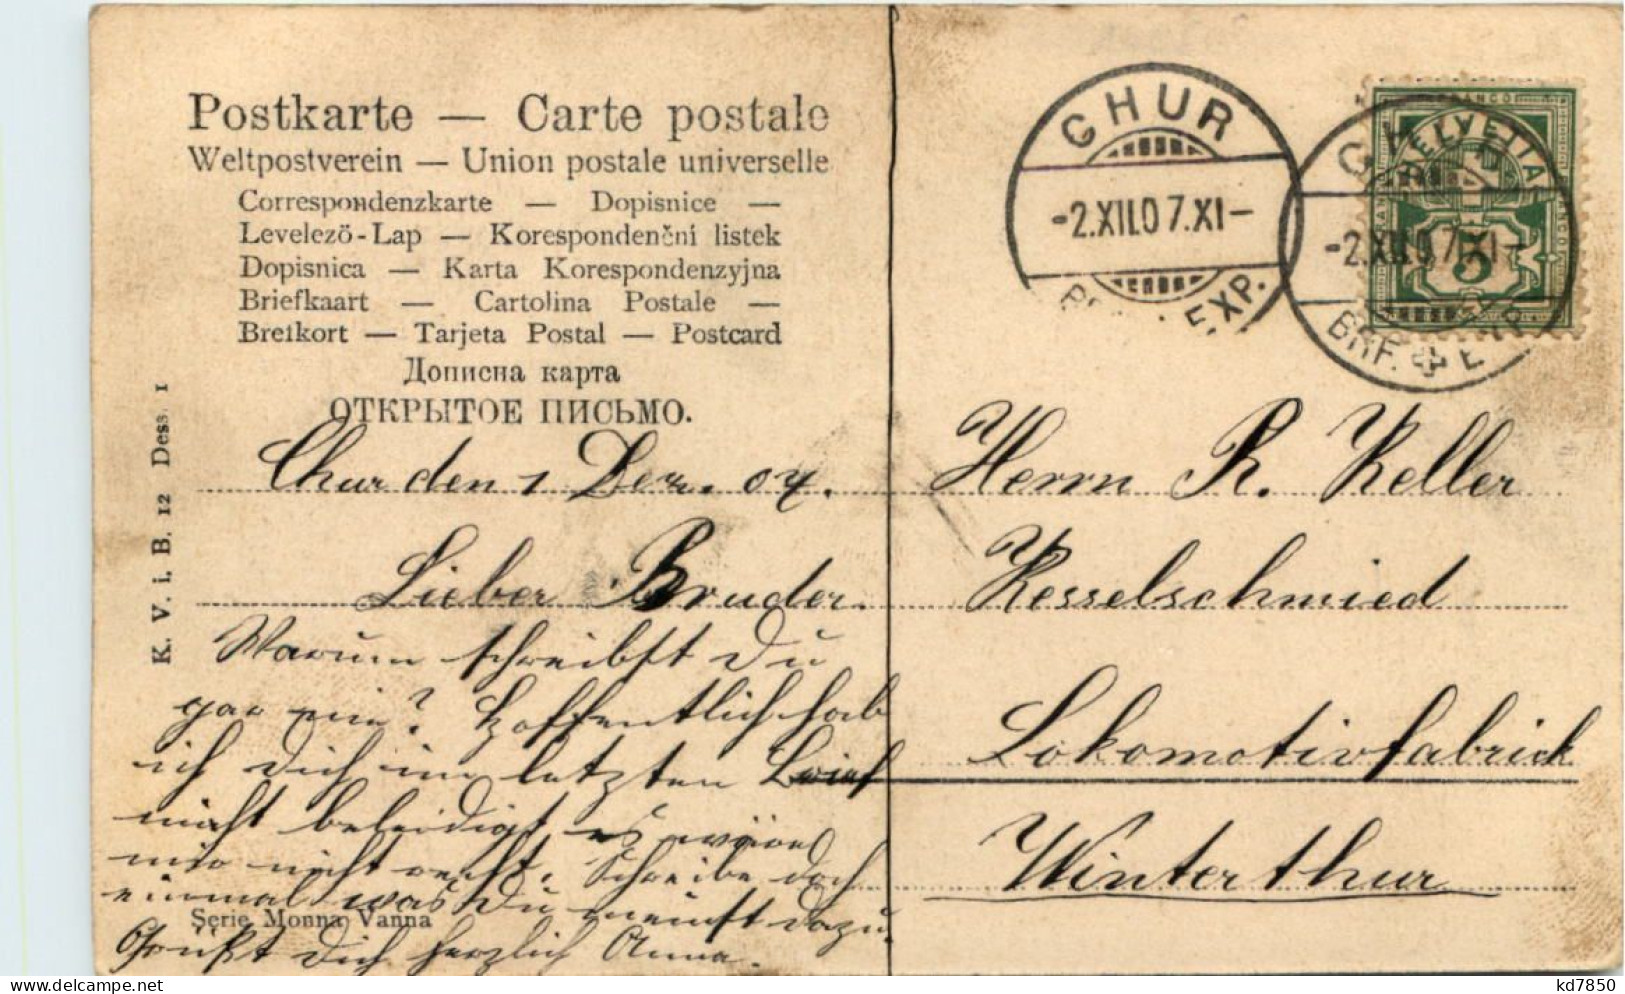 Postkarte — Carte postale
Weltpostverein — Union postale universelle
Correspondenzkarte — Dopisnice —
Levelező-Lap — Korespondenční listek
Dopisnica — Karta Korespondenzyjna
Briefkaart — Cartolina Postale —
Brefkort — Tarjeta Postal — Postcard
Дописна карта
ОТКРЫТОЕ ПИСЬМО.
K. V. i. B. 12 Dess. 1
Chur den 1 Dez. 07.
Lieber Bruder.
Warum schreibst Du
gar nie? Hoffentlich hab
ich Dich im letzten Brief
nicht beleidigt, es wäre
mir nicht recht. Schreibe doch
einmal was Du meinst dazu.
Serie Monna Vanna
Grüßt Dich herzlich Anna.
CHUR
-2.XII.07.XI-
EXP.
FRANCO
HELVETIA
FRANCO
5
-2.XII.07.XI-
BRF. EXP.
Herrn R. Keller
Kesselschmied
Lokomotivfabrick
Winterthur
kd7850